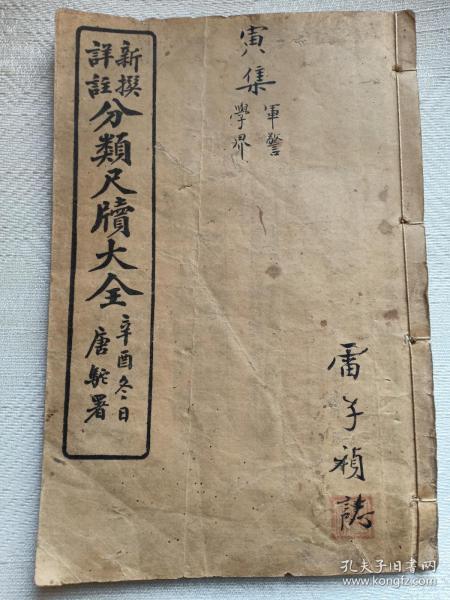 新撰
詳註
分類尺牘大全
辛酉冬日
唐駝署
寅集
軍警
學界
雷子禎
讀
孔夫子旧书网
www.kongfz.com